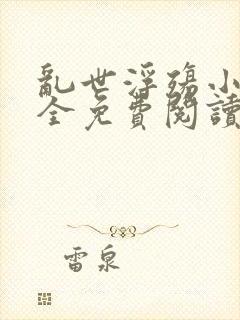 亂世浮殤小
全免費閱讀
雷泉